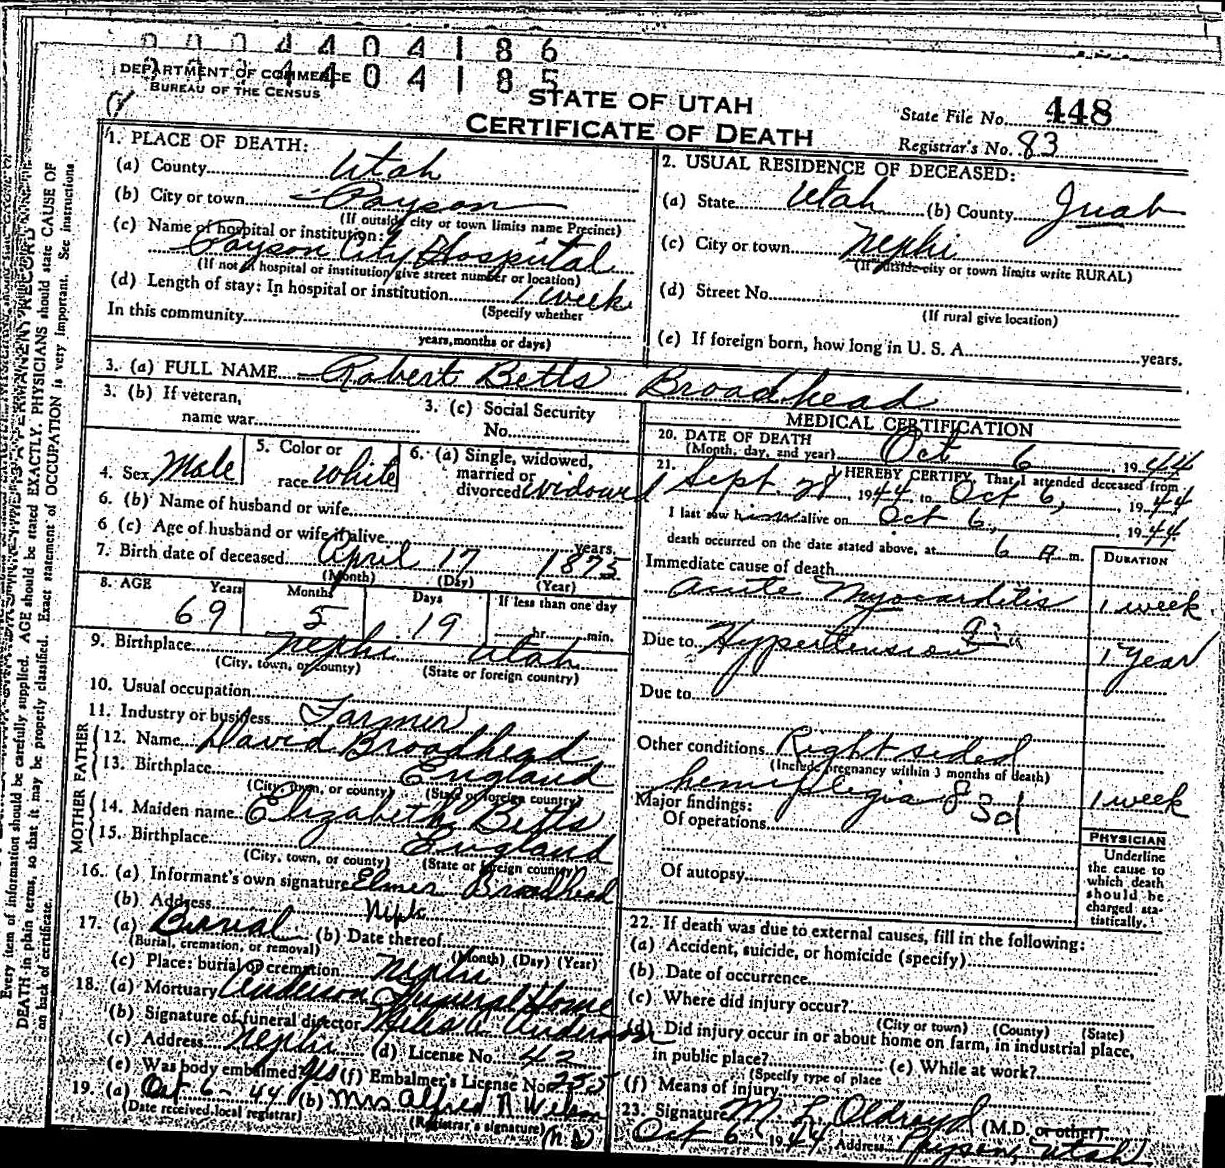 0 0 0 4 4 0 4 1 8 6
4 4 0 4 1 8 5
DEPARTMENT OF COMMERCE
BUREAU OF THE CENSUS
STATE OF UTAH
CERTIFICATE OF DEATH
State File No. 448
Registrar's No. 83
1. PLACE OF DEATH:
(a) County Utah
(b) City or town Payson
(If outside city or town limits name Precinct)
(c) Name of hospital or institution:
Payson City Hospital
(If not in hospital or institution give street number or location)
(d) Length of stay: In hospital or institution 1 week
(Specify whether
In this community
years, months or days)
2. USUAL RESIDENCE OF DECEASED:
(a) State Utah (b) County Juab
(c) City or town Nephi
(If outside city or town limits write RURAL)
(d) Street No.
(If rural give location)
(e) If foreign born, how long in U. S. A. years.
3. (a) FULL NAME Robert Betts Broadhead
3. (b) If veteran,
name war
3. (c) Social Security
No.
4. Sex Male
5. Color or
race White
6. (a) Single, widowed,
married or
divorced Widowed
6. (b) Name of husband or wife
6 (c) Age of husband or wife if alive years.
7. Birth date of deceased April 17 1875
(Month) (Day) (Year)
8. AGE Years Months Days If less than one day
69 5 19 hr. min.
9. Birthplace Nephi Utah
(City, town, or county) (State or foreign country)
10. Usual occupation
11. Industry or business Farmer
FATHER
12. Name David Broadhead
13. Birthplace England
(City, town, or county) (State or foreign country)
MOTHER
14. Maiden name Elizabeth Betts
15. Birthplace England
(City, town, or county) (State or foreign country)
16. (a) Informant's own signature Elmer Broadhead
(b) Address Nephi
17. (a) Burial (b) Date thereof
(Burial, cremation, or removal) (Month) (Day) (Year)
(c) Place: burial or cremation Nephi
18. (a) Mortuary Anderson Funeral Home
(b) Signature of funeral director Miles A. Anderson
(c) Address Nephi (d) License No. 42
(e) Was body embalmed? yes (f) Embalmer's License No. 255
19. (a) Oct 6 - 44 (b) Mrs Alfred N Wilson
(Date received local registrar) (Registrar's signature)
MEDICAL CERTIFICATION
20. DATE OF DEATH
(Month, day, and year) Oct 6, 1944
21. I HEREBY CERTIFY, That I attended deceased from
Sept. 28, 1944 to Oct 6, 1944
I last saw him alive on Oct 6, 1944
death occurred on the date stated above, at 6 a m.
DURATION
Immediate cause of death
Acute Myocarditis 1 week
Due to Hypertension 1 year
Due to
Other conditions Right sided
(Include pregnancy within 3 months of death)
hemiplegia 83d 1 week
Major findings:
Of operations
Of autopsy
PHYSICIAN
Underline
the cause to
which death
should be
charged sta-
tistically.
22. If death was due to external causes, fill in the following:
(a) Accident, suicide, or homicide (specify)
(b) Date of occurrence
(c) Where did injury occur?
(City or town) (County) (State)
(d) Did injury occur in or about home on farm, in industrial place,
in public place?
(Specify type of place
(e) While at work?
(f) Means of injury
23. Signature M L Oldroyd (M.D. or other)
Oct 6 1944 Address Payson, Utah
Every item of information should be carefully supplied. AGE should be stated EXACTLY. PHYSICIANS should state CAUSE OF
DEATH in plain terms, so that it may be properly classified. Exact statement of OCCUPATION is very important. See instructions
on back of certificate.